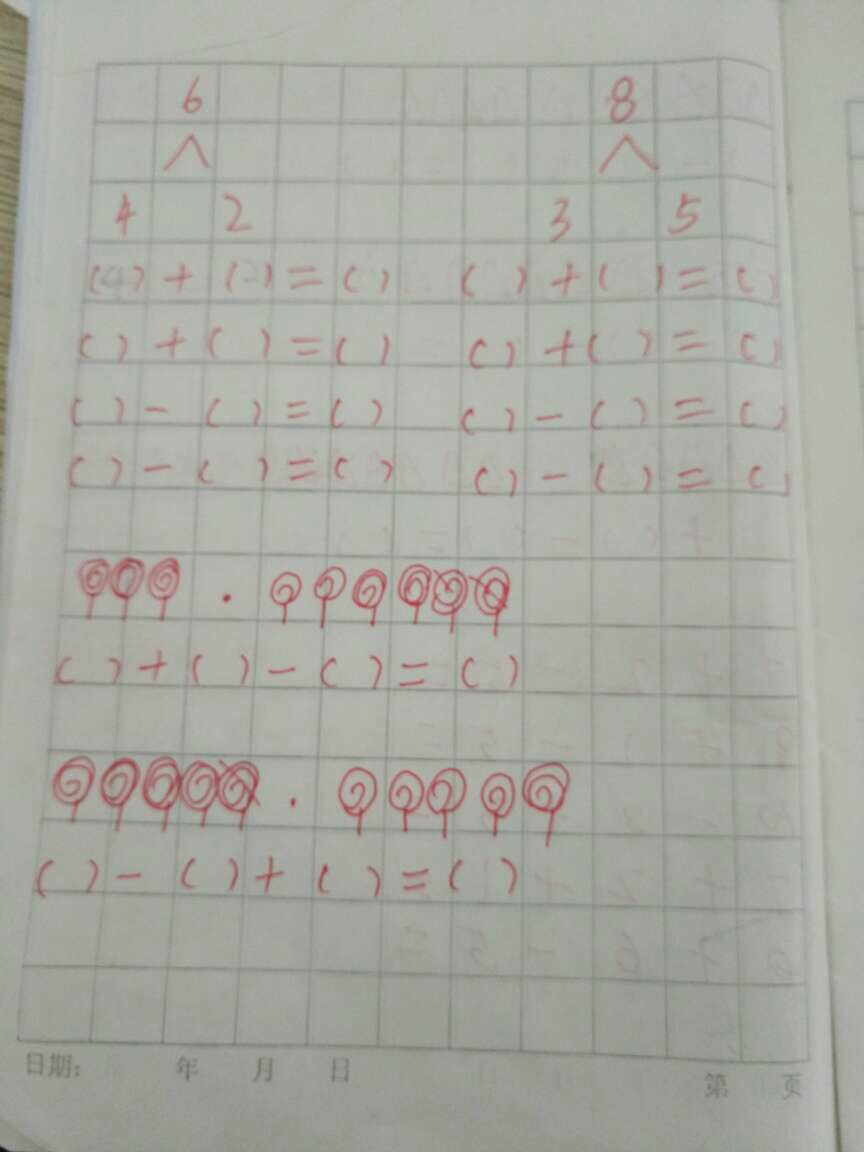 6 8
4 2 3 5
(4)+(2)=() ()+()=()
()+()=() ()+()=()
()-()=() ()-()=()
()-()=() ()-()=()
()+()-()=()
()-()+()=()
日期: 年 月 日 第 页